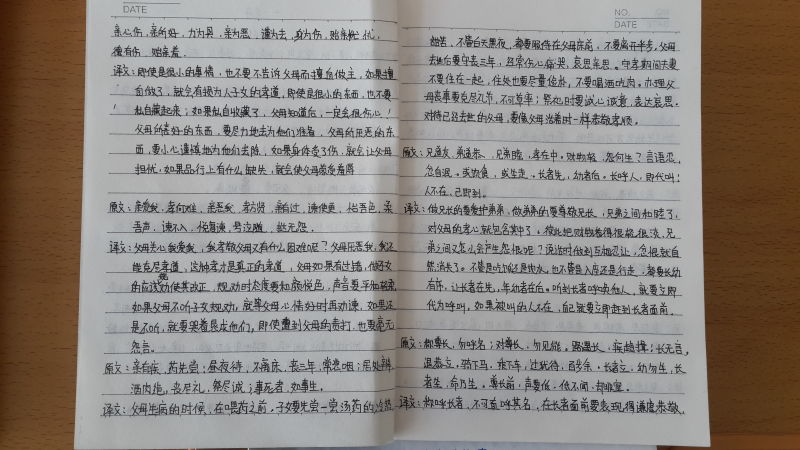 DATE
亲心伤,亲所好,力为具,亲为恶,谨为去,身为伤,贻亲忧
德有伤,贻亲羞.
译文:即使是很小的事情,也不要不告诉父母而擅自做主,如果擅
自做了,就会有损为人子女的孝道,即使是很小的东西,也不要
私自藏起来;如果私自收藏了,父母知道后,一定会很伤心!
父母所喜好的东西,要尽力地去为他们准备,父母所厌恶的东
西,要小心谨慎地为他们去除,如果身体受了伤,就会让父母
担忧.如果品行上有什么缺失,就会使父母感受羞辱
原文:亲爱我,孝何难,亲恶我,孝方贤,亲有过,谏使更,怡吾色,柔
吾声,谏不入,悦复谏,号泣随,挞无怨.
译文:父母关心我爱我,我孝敬父母又有什么困难呢?父母厌恶我,我还
能克尽孝道,这种孝才是真正的孝道,父母如果有过错,做子女
的应该劝使其改正,规劝时态度要和颜悦色,声音要平和轻柔
如果父母不听子女规劝,就等父母心情好时再劝谏,如果还
是不听,就要哭着恳求他们,即使遭到父母的责打,也要毫无
怨言.
原文:亲有疾,药先尝;昼夜侍,不离床,丧三年,常悲咽;居处辨,
酒肉绝,丧尽礼,祭尽诚;事死者,如事生.
译文:父母生病的时候,在喂药之前,子女要先尝一尝汤药的冷热
NO.
DATE
甜苦,不管白天黑夜,都要服侍在父母床前,不要离开半步,父母
去世后要守丧三年,经常伤心痛哭,哀思亲恩.守孝期间夫妻
不要住在一起,住处也要尽量俭朴,不要喝酒吃肉.办理父
母丧事要克尽礼节,不可草率;祭祀时要诚心诚意,表达哀思.
对待已经去世的父母,要像父母活着时一样恭敬孝顺.
原文:兄道友,弟道恭,兄弟睦,孝在中.财物轻,怨何生?言语忍,
忿自泯.或饮食,或坐走.长者先,幼者后.长呼人,即代叫!
人不在,己即到.
译文:做兄长的要爱护弟弟,做弟弟的要尊敬兄长,兄弟之间和睦了,
对父母的孝心就包含其中了.彼此把财物看得很轻很淡,兄
弟之间又怎么会产生怨恨呢?说话时做到互相忍让,忿恨就自
然消失了.不管是吃饭还是饮水,也不管是入座还是行走,都要长幼
有序,让长者在先,年幼者在后.听到长者呼唤他人,就要立即
代为呼叫,如果被叫的人不在,自己就要立即赶到长者面前.
原文:称尊长,勿呼名;对尊长,勿见能.路遇长,疾趋揖;长无言,
退恭立,骑下马,乘下车,过犹待,百步余.长者立,幼勿坐,长
者坐,命乃坐.尊长前,声要低,低不闻,却非宜.
译文:称呼长者,不可直呼其名,在长者面前要表现得谦虚恭敬,